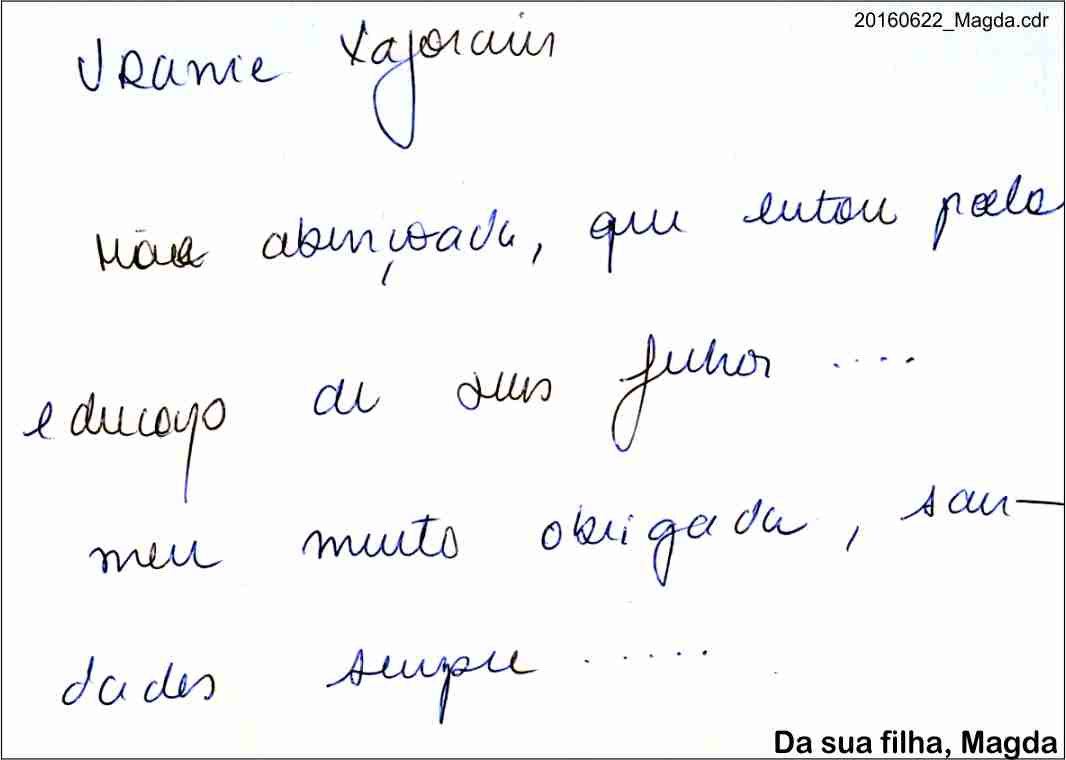 20160622_Magda.cdr
Uranie
mãe abençoada, que lutou pela
educação de seus filhos ....
meu muito obrigada, sau-
dades sempre .....
Da sua filha, Magda